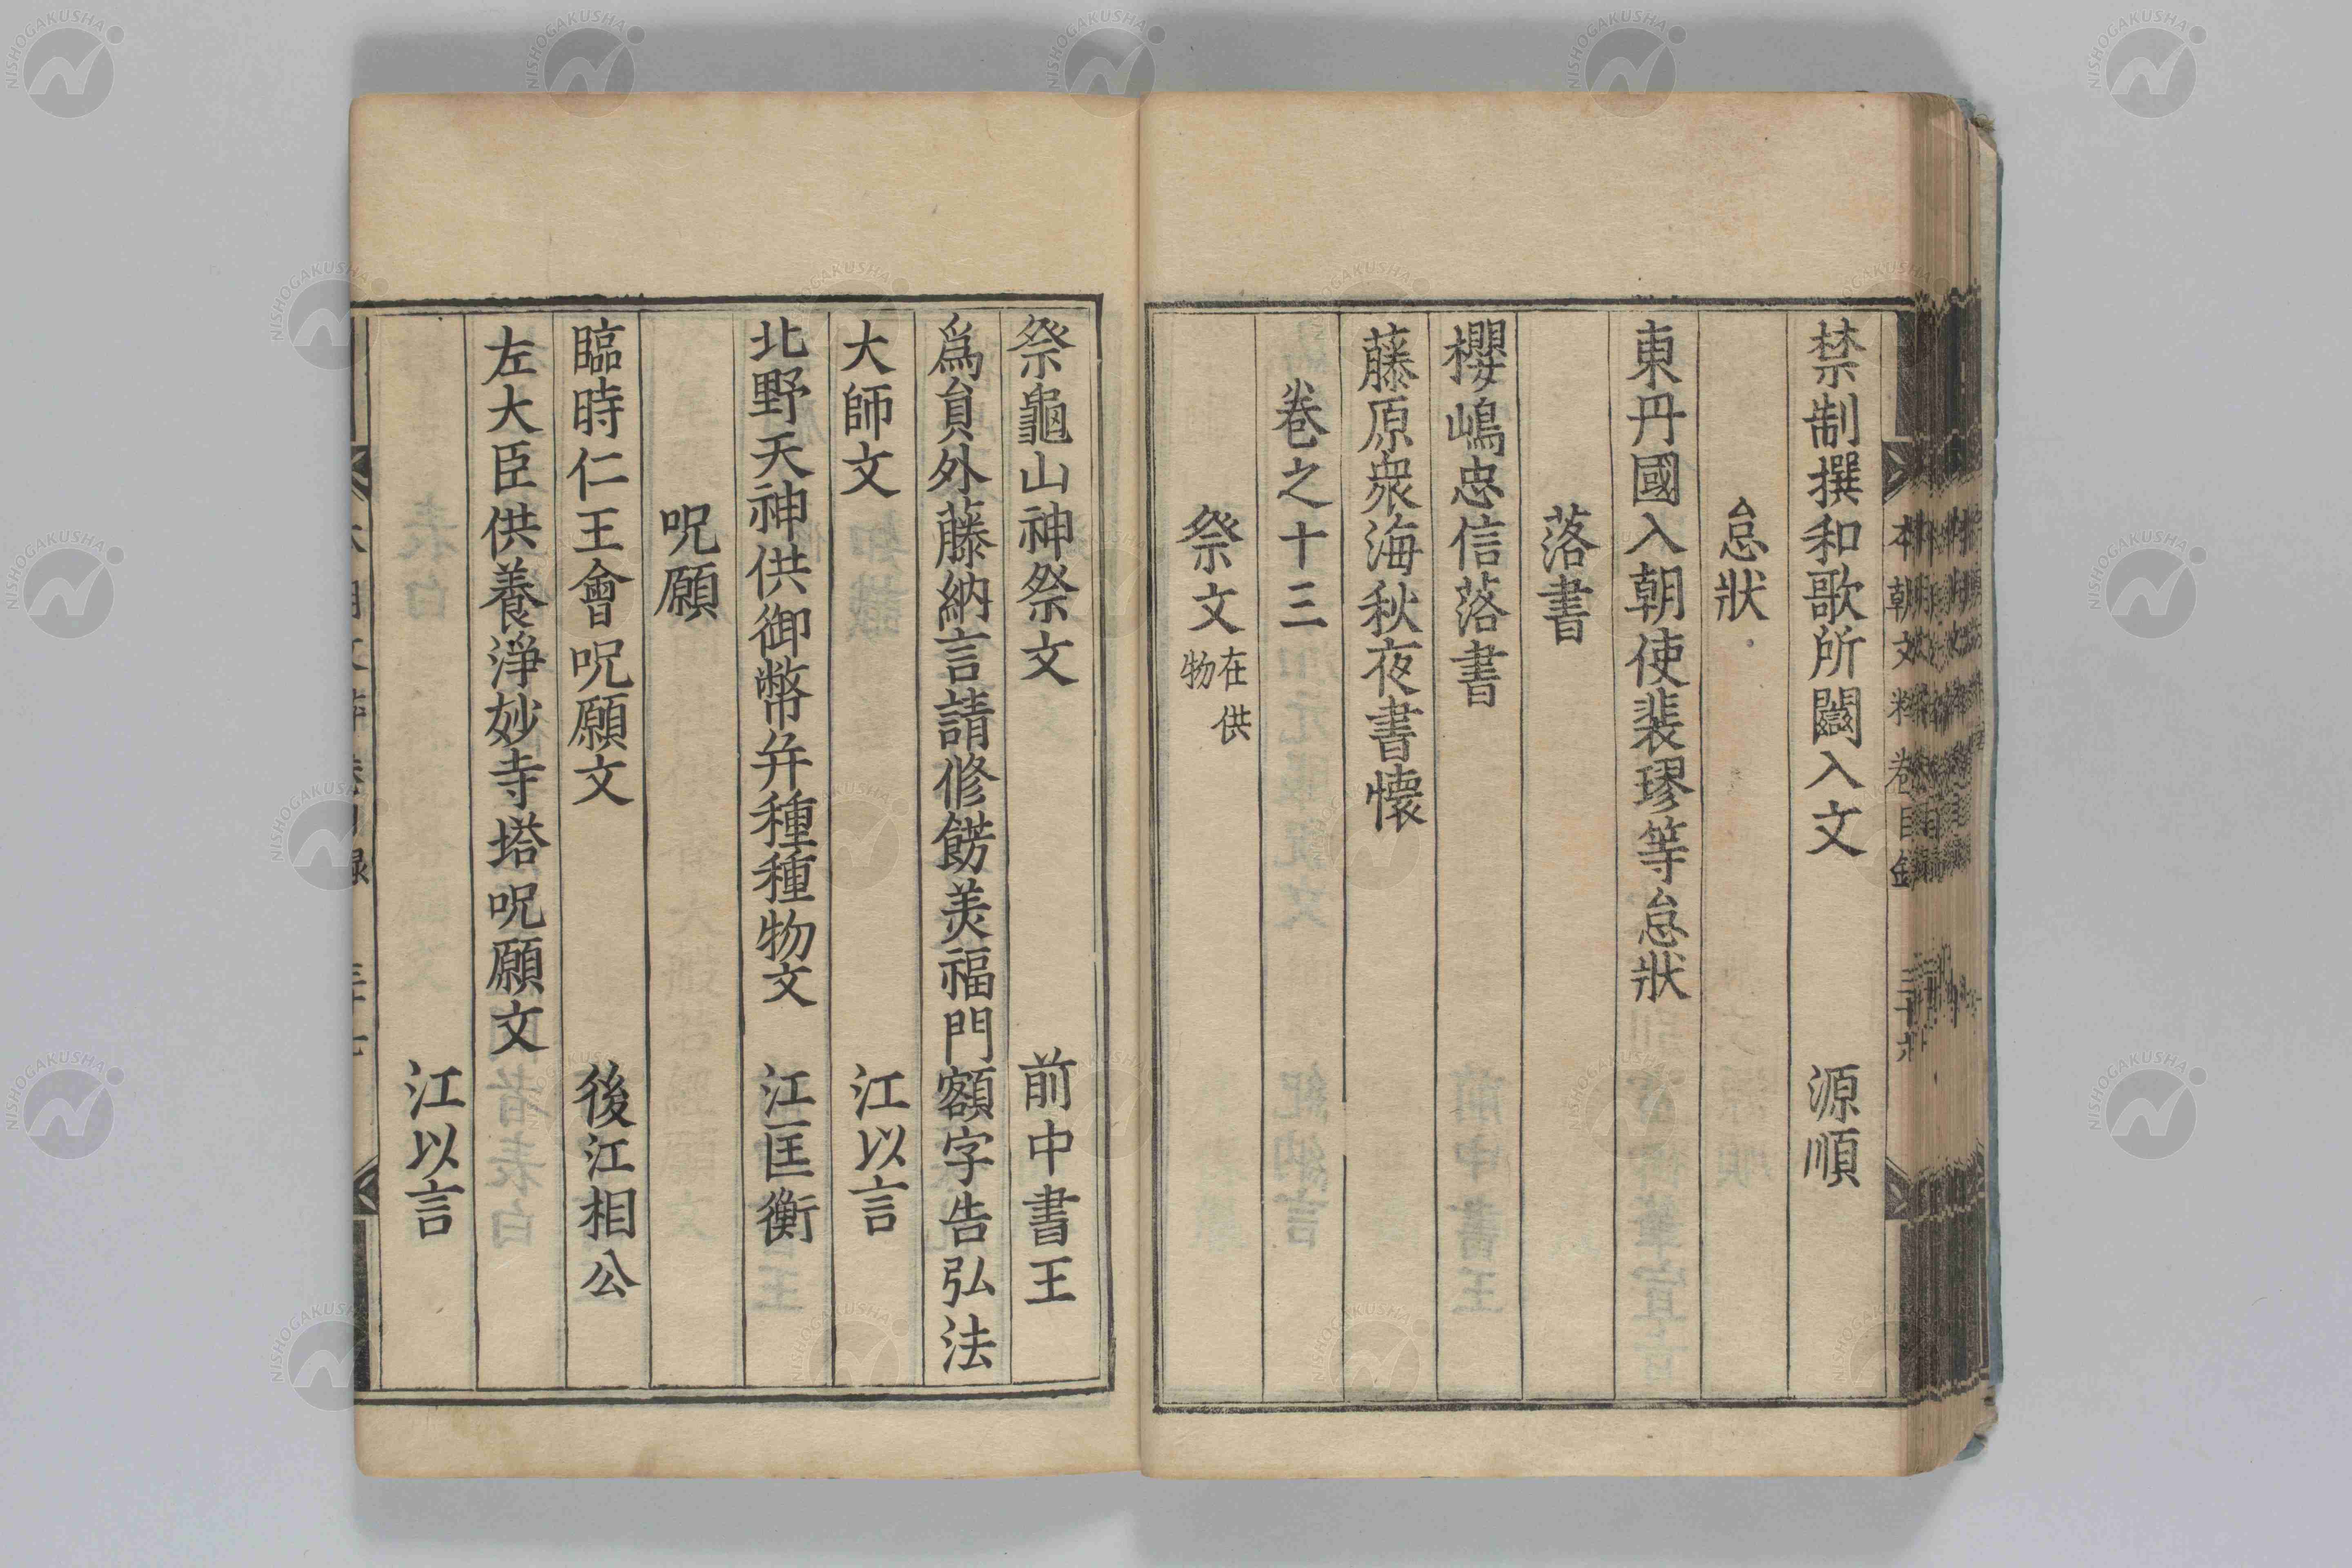 禁制撰和歌所闌入文 源順
怠狀
東丹國入朝使裴璆等怠狀
落書
櫻嶋忠信落書
藤原衆海秋夜書懷
卷之十三
祭文 在供物
祭龜山神祭文 前中書王
爲員外藤納言請修餝美福門額字告弘法
大師文 江以言
北野天神供御幣并種種物文 江匡衡
呪願
臨時仁王會呪願文 後江相公
左大臣供養淨妙寺塔呪願文
江以言
NISHOGAKUSHA